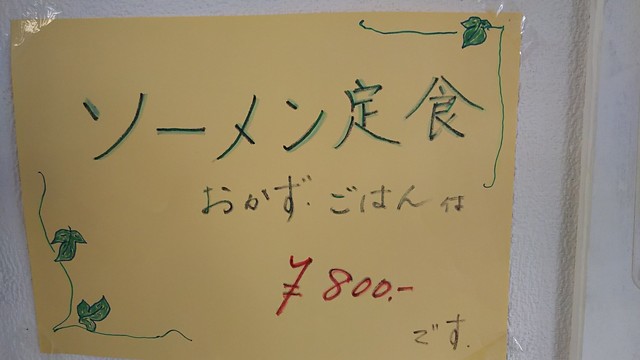 ソーメン定食
おかず.ごはんは
¥800.-
です.